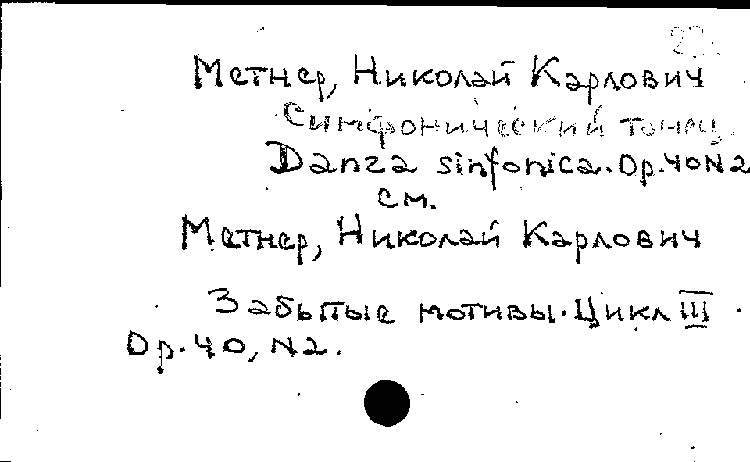 Метнер, Николай Карлович
Симфонический танец.
Danza sinfonica. Op. 40 N2
см.
Метнер, Николай Карлович
Забытые мотивы. Цикл III
Op. 40, N2.